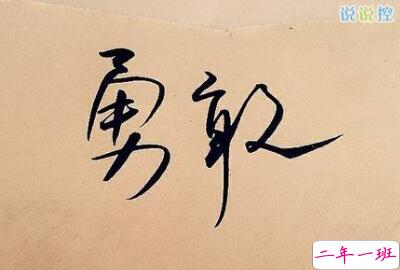 说说控
勇敢
二年一班